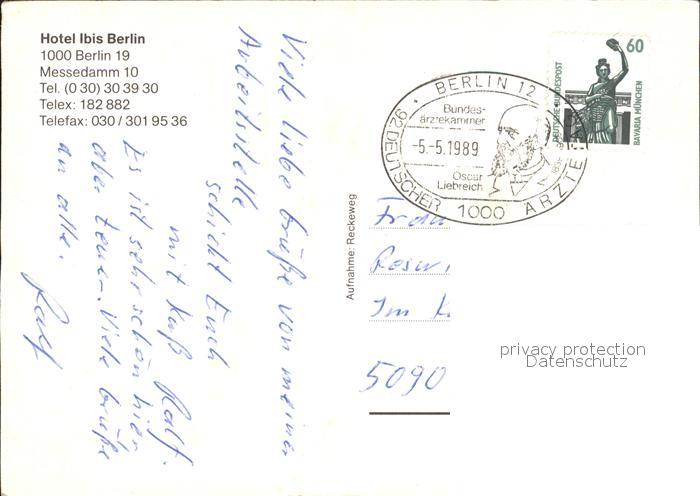 Hotel Ibis Berlin
1000 Berlin 19
Messedamm 10
Tel. (0 30) 30 39 30
Telex: 182 882
Telefax: 030 / 301 95 36
Viele liebe Grüße von meiner
Arbeitsstelle
schickt Euch
mit Kuß Ralf.
Es ist sehr schön hier
aber teuer. Viele Grüße
an alle.
Ralf
Aufnahme: Reckeweg
BERLIN 12
Bundes-
ärztekammer
-5.-5.1989
Oscar
Liebreich
92. DEUTSCHER ÄRZTETAG
1000
60
DEUTSCHE BUNDESPOST
BAVARIA MÜNCHEN
Frau
Im
5090
privacy protection
Datenschutz